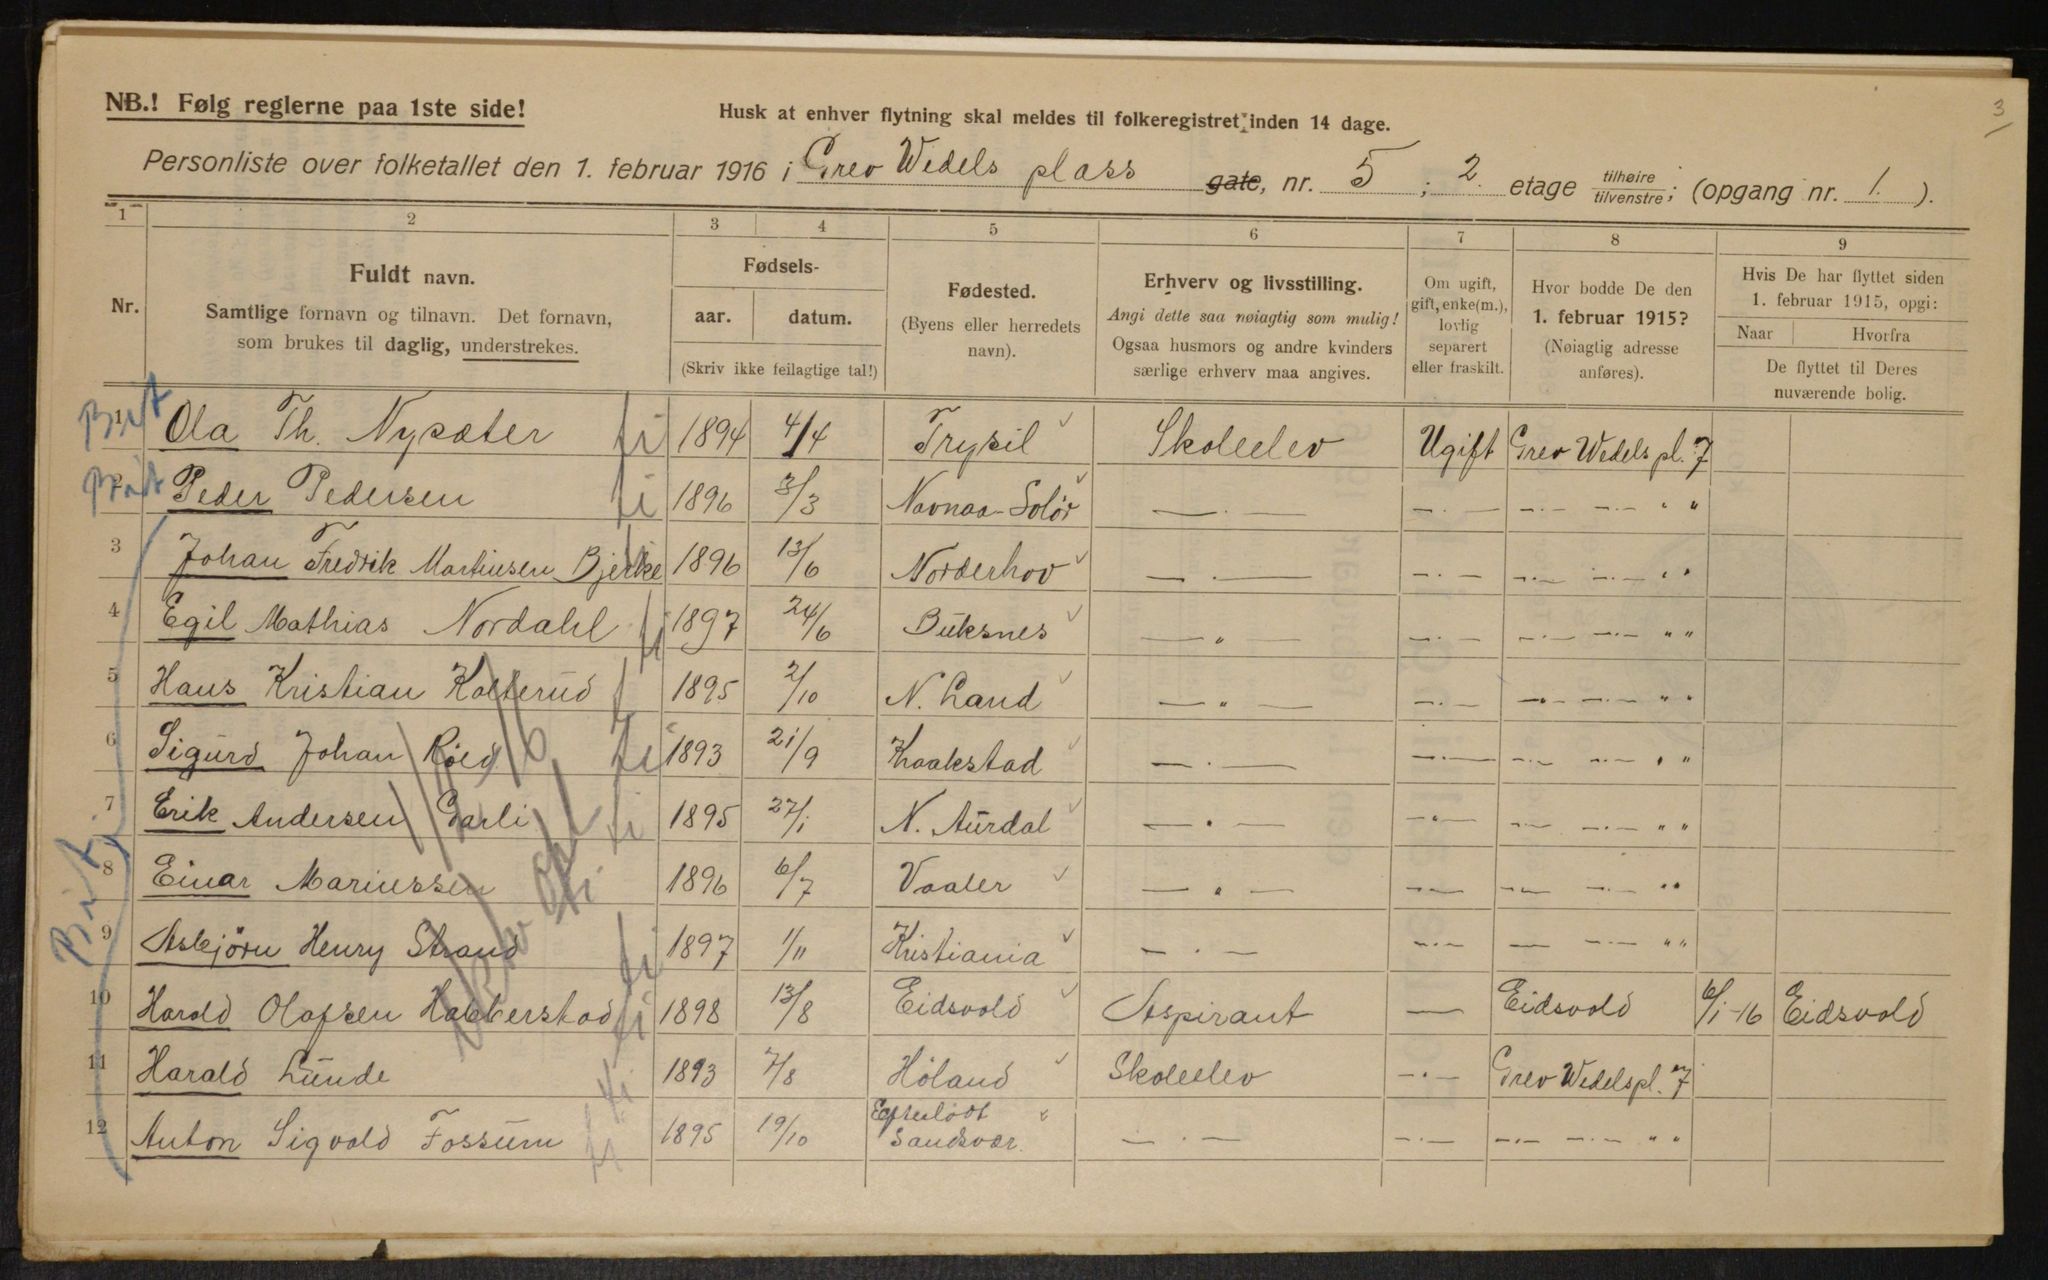 3
NB.! Følg reglerne paa 1ste side!
Husk at enhver flytning skal meldes til folkeregistret inden 14 dage.
Personliste over folketallet den 1. februar 1916 i Grev Wedels plass gate, nr. 5 ; 2. etage tilhøire/tilvenstre; (opgang nr. 1. ).
1 2 3 4 5 6 7 8 9
Nr. Fuldt navn. Samtlige fornavn og tilnavn. Det fornavn, som brukes til daglig, understrekes.
Fødsels- aar. datum. (Skriv ikke feilagtige tal!)
Fødested. (Byens eller herredets navn).
Erhverv og livsstilling. Angi dette saa nøiagtig som mulig! Ogsaa husmors og andre kvinders særlige erhverv maa angives.
Om ugift, gift, enke(m.), lovlig separert eller fraskilt.
Hvor bodde De den 1. februar 1915? (Nøiagtig adresse anføres).
Hvis De har flyttet siden 1. februar 1915, opgi: Naar Hvorfra De flyttet til Deres nuværende bolig.
1 Ola Th. Nysæter 1894 4/4 Trysil Skoleelev Ugift Grev Wedels pl. 7
2 Peder Pedersen 1896 3/3 —·— —·— —·— —·— " "
3 Johan Fredrik Martinsen Bjerke 1896 13/6 Norderhov —·— —·— —·— —·— " "
4 Egil Mathias Nordahl 1897 24/6 Buksnes —"— —·— —·— —·— " "
5 Hans Kristian Kolterud 1895 2/10 N. Land —"— —·— —·— —·— " "
6 Sigurd Johan Röed 1893 21/9 Kraakstad —·— —·— —·— —·— " "
7 Erik Andersen Garli 1895 27/1 N. Aurdal —·— —"— —·— —·— " "
8 Einar Mariussen 1896 6/7 Vaaler —"— —·— —·— —·— " "
9 Asbjörn Henry Strand 1897 1/11 Kristiania —·— —·— — —·— " "
10 Harald Olafsen Habberstad 1898 13/8 Eidsvold Aspirant — Eidsvold 6/1-16 Eidsvold
11 Harald Lunde 1893 7/8 Höland Skoleelev —·— Grev Wedelspl. 7
12 Anton Sigvald Fossum 1895 19/10 Efterlödt Sandsvær —·— —·— —·— —·— " "